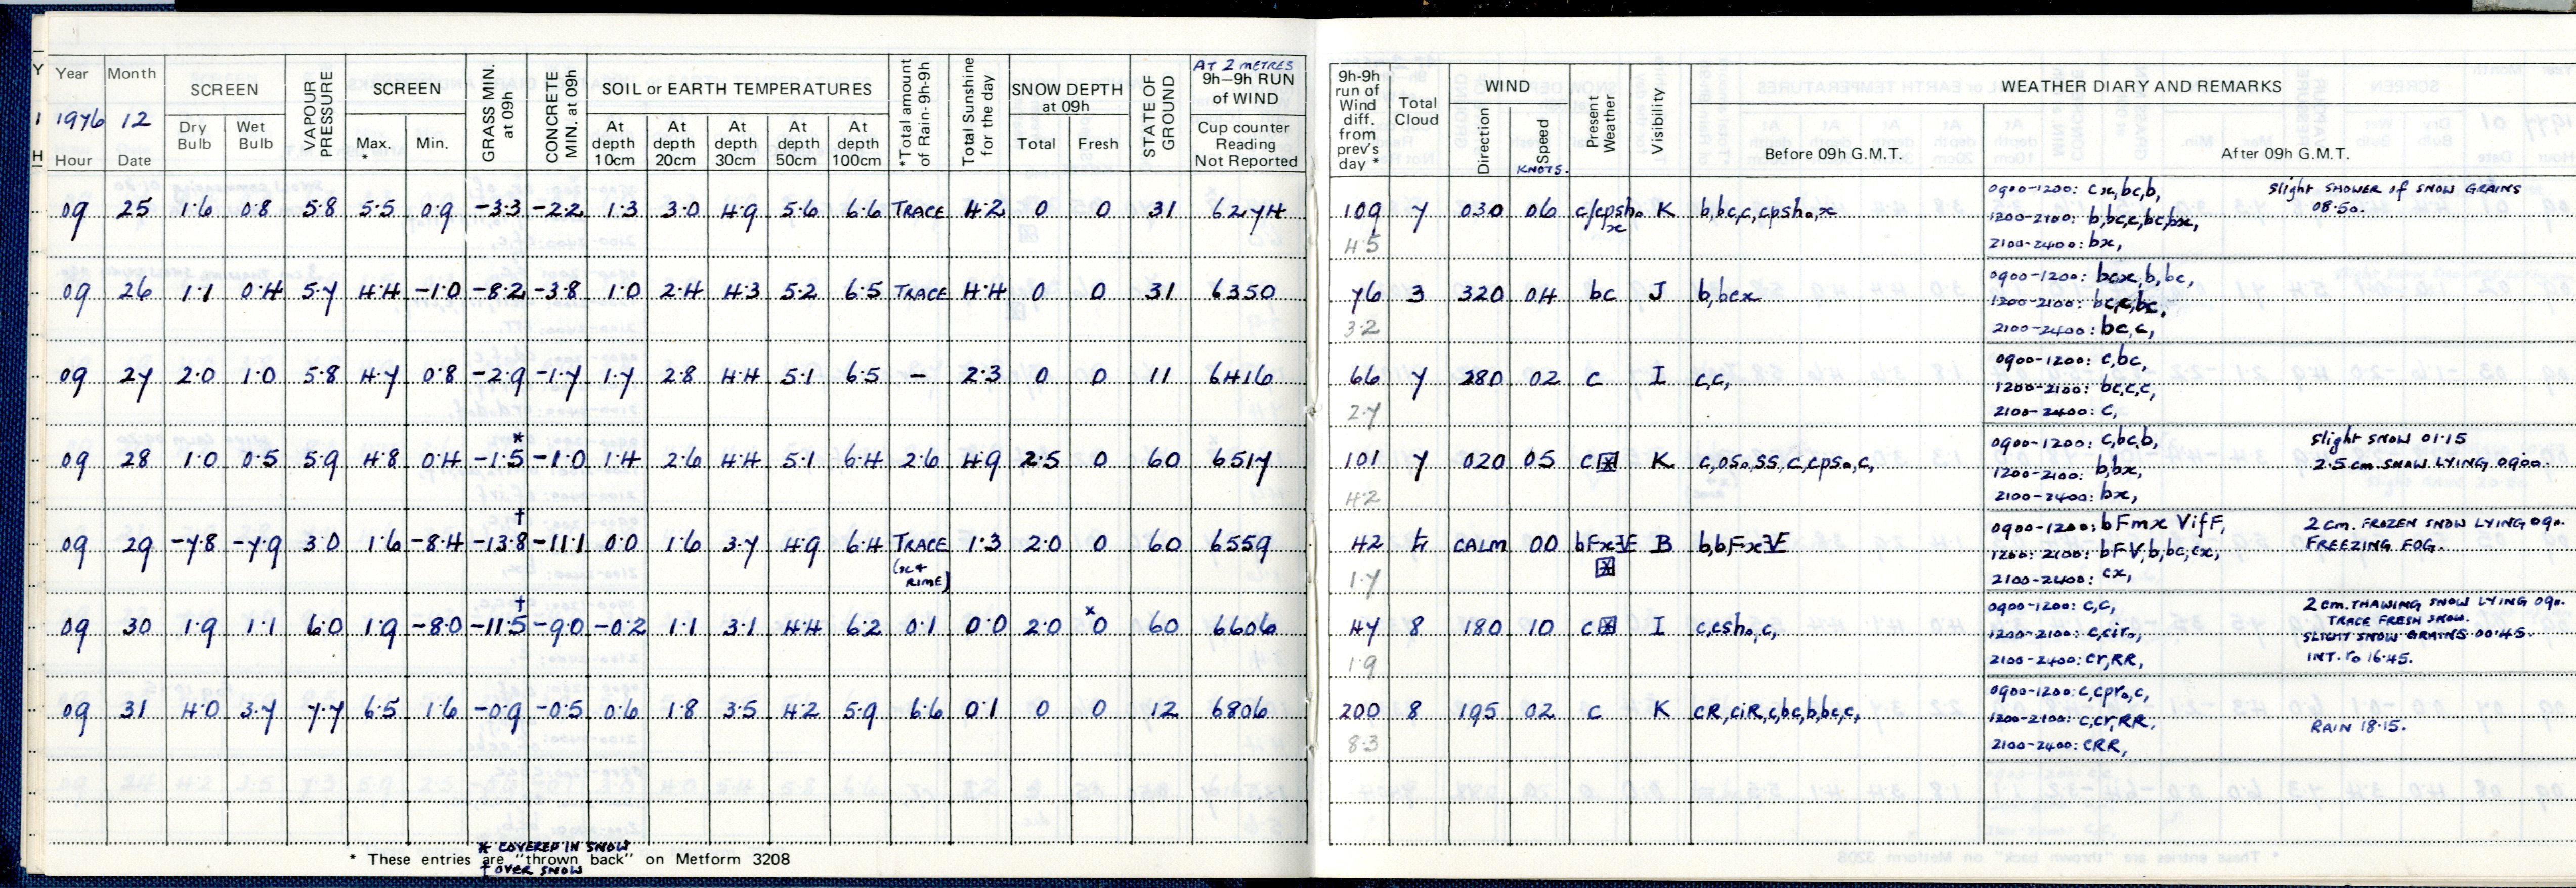 Y
1
H
Year
1976
Hour
Month
12
Date
SCREEN
Dry Bulb
Wet Bulb
VAPOUR PRESSURE
SCREEN
Max. *
Min.
GRASS MIN. at 09h
CONCRETE MIN. at 09h
SOIL or EARTH TEMPERATURES
At depth 10cm
At depth 20cm
At depth 30cm
At depth 50cm
At depth 100cm
*Total amount of Rain-9h-9h
Total Sunshine for the day
SNOW DEPTH at 09h
Total
Fresh
STATE OF GROUND
AT 2 METRES
9h–9h RUN of WIND
Cup counter Reading Not Reported
09 25 1.6 0.8 5.8 5.5 0.9 -3.3 -2.2 1.3 3.0 4.9 5.6 6.6 TRACE 4.2 0 0 31 6274
09 26 1.1 0.4 5.7 4.4 -1.0 -8.2 -3.8 1.0 2.4 4.3 5.2 6.5 TRACE 4.4 0 0 31 6350
09 27 2.0 1.0 5.8 4.7 0.8 -2.9 -1.7 1.7 2.8 4.4 5.1 6.5 – 2.3 0 0 11 6416
*
09 28 1.0 0.5 5.9 4.8 0.4 -1.5 -1.0 1.4 2.6 4.4 5.1 6.4 2.6 4.9 2.5 0 60 6517
†
09 29 -7.8 -7.9 3.0 1.6 -8.4 -13.8 -11.1 0.0 1.6 3.7 4.9 6.4 TRACE 1.3 2.0 0 60 6559
(x + RIME)
† x
09 30 1.9 1.1 6.0 1.9 -8.0 -11.5 -9.0 -0.2 1.1 3.1 4.4 6.2 0.1 0.0 2.0 0 60 6606
09 31 4.0 3.7 7.7 6.5 1.6 -0.9 -0.5 0.6 1.8 3.5 4.2 5.9 6.6 0.1 0 0 12 6806
* COVERED IN SNOW
* These entries are "thrown back" on Metform 3208
† OVER SNOW
9h-9h run of Wind diff. from prev's day *
Total Cloud
WIND
Direction
Speed
KNOTS.
Present Weather
Visibility
WEATHER DIARY AND REMARKS
Before 09h G.M.T.
After 09h G.M.T.
109 7 030 06 c/cpsho x K b,bc,c,cpsho,x
4.5
0900-1200: cx,bc,b,
1200-2100: b,bc,c,bc,bx,
2100-2400: bx,
Slight SHOWER of SNOW GRAINS
08.50.
76 3 320 04 bc J b,bcx
3.2
0900-1200: bcx,b,bc,
1200-2100: bc,c,bc,
2100-2400: bc,c,
66 7 280 02 c I c,c,
2.7
0900-1200: c,bc,
1200-2100: bc,c,c,
2100-2400: c,
101 7 020 05 c K c,oso,ss,c,cpso,c,
4.2
0900-1200: c,bc,b,
1200-2100: b,bx,
2100-2400: bx,
Slight SNOW 01.15
2.5 cm. SNOW LYING 0900.
42 CALM 00 B
1.7
0900-1200: bFmx VifF,
1200-2100: bFV,b,bc,cx,
2100-2400: cx,
2 cm. FROZEN SNOW LYING 09.
FREEZING FOG.
47 8 180 10 c I c,csho,c,
1.9
0900-1200: c,c,
1200-2100: c,ciro,
2100-2400: cr,RR,
2 cm. THAWING SNOW LYING 09.
TRACE FRESH SNOW.
SLIGHT SNOW GRAINS 00.45.
INT. ro 16.45.
200 8 195 02 c K cR,ciR,c,bc,b,bc,c,
8.3
0900-1200: c,cpro,c,
1200-2100: c,cr,RR,
2100-2400: cRR,
RAIN 18.15.